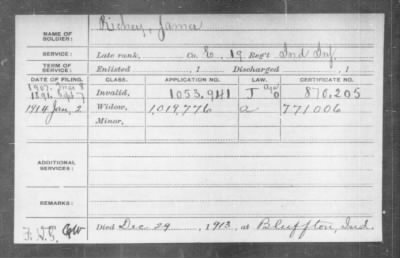 NAME OF SOLDIER: Richey, James
SERVICE: Late rank, Co. E, 19 Reg't Ind Inf.
TERM OF SERVICE: Enlisted , 1 Discharged , 1
DATE OF FILING. CLASS. APPLICATION NO. LAW. CERTIFICATE NO.
1907. Mar 8
1891. Sept 7 Invalid, 1053,941 J 870,205
1914 Jan, 2. Widow, 1,019,776 a 771006
Minor,
ADDITIONAL SERVICES:
REMARKS:
Died Dec 29, 1913, at Bluffton, Ind.